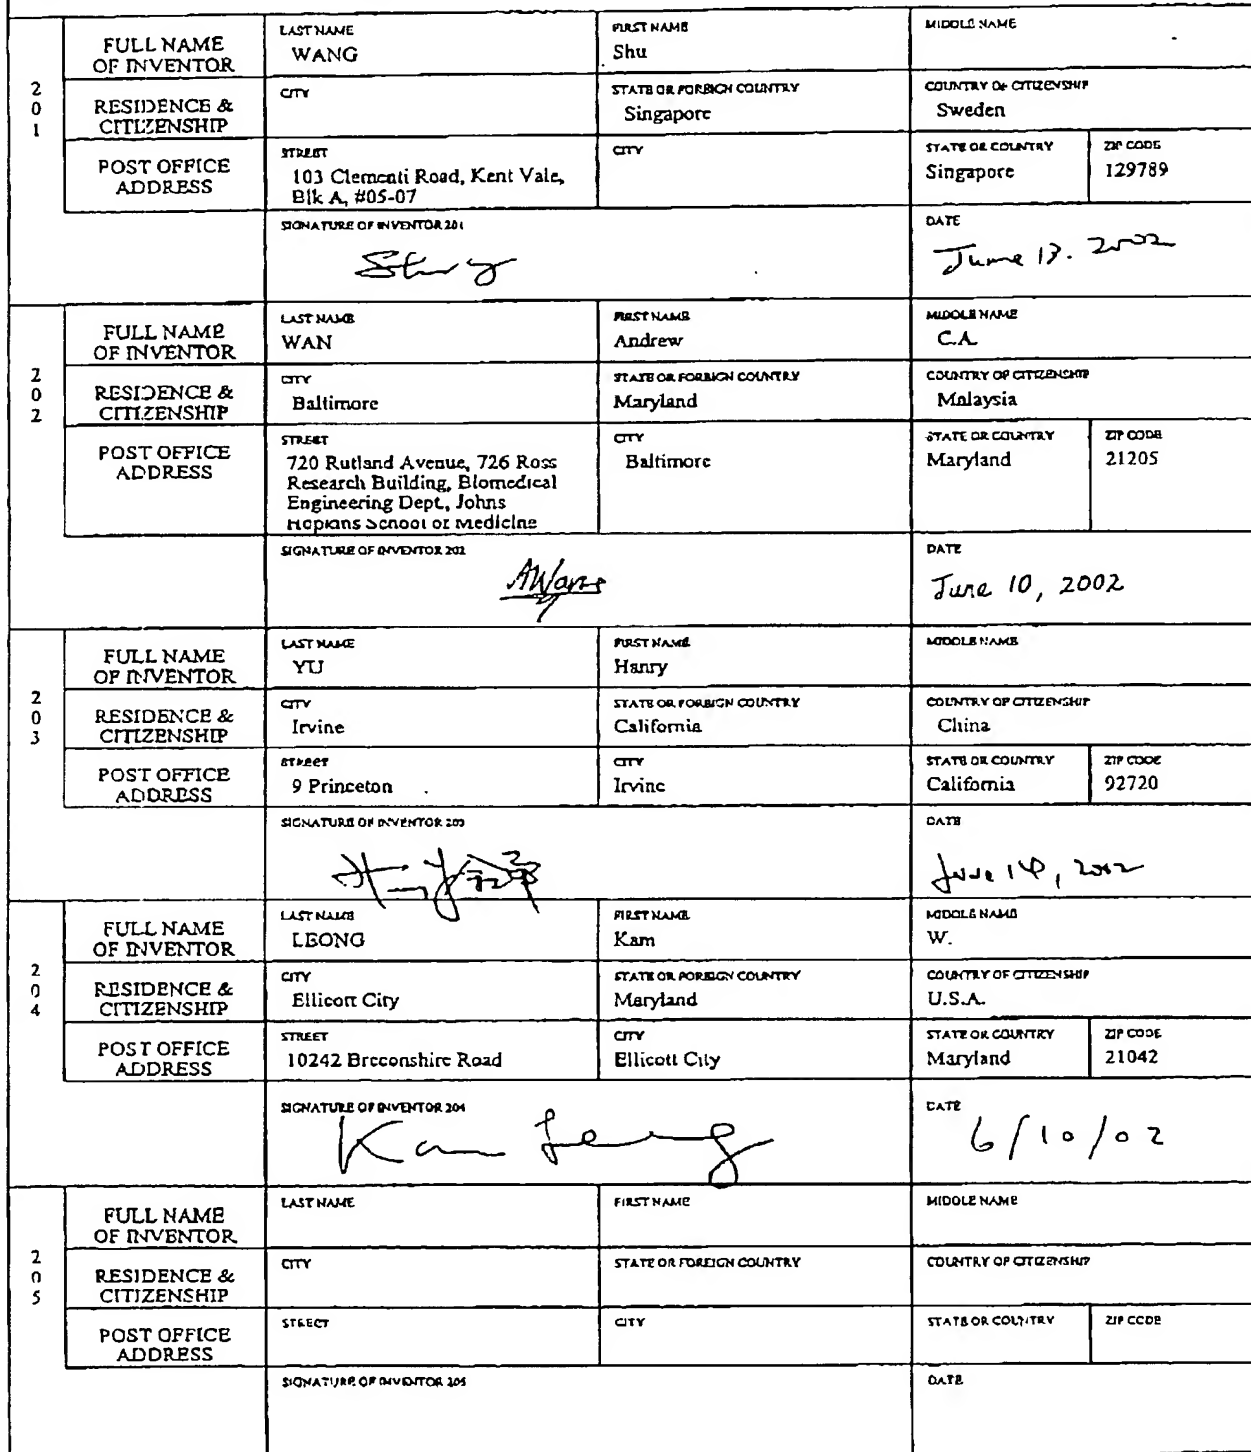 201
FULL NAME OF INVENTOR
LAST NAME
WANG
FIRST NAME
Shu
MIDDLE NAME
RESIDENCE & CITIZENSHIP
CITY
STATE OR FOREIGN COUNTRY
Singapore
COUNTRY OF CITIZENSHIP
Sweden
POST OFFICE ADDRESS
STREET
103 Clementi Road, Kent Vale,
Blk A, #05-07
CITY
STATE OR COUNTRY
Singapore
ZIP CODE
129789
SIGNATURE OF INVENTOR 201
DATE
June 13. 2002
202
FULL NAME OF INVENTOR
LAST NAME
WAN
FIRST NAME
Andrew
MIDDLE NAME
C.A.
RESIDENCE & CITIZENSHIP
CITY
Baltimore
STATE OR FOREIGN COUNTRY
Maryland
COUNTRY OF CITIZENSHIP
Malaysia
POST OFFICE ADDRESS
STREET
720 Rutland Avenue, 726 Ross
Research Building, Biomedical
Engineering Dept., Johns
Hopkins School of Medicine
CITY
Baltimore
STATE OR COUNTRY
Maryland
ZIP CODE
21205
SIGNATURE OF INVENTOR 202
DATE
June 10, 2002
203
FULL NAME OF INVENTOR
LAST NAME
YU
FIRST NAME
Hanry
MIDDLE NAME
RESIDENCE & CITIZENSHIP
CITY
Irvine
STATE OR FOREIGN COUNTRY
California
COUNTRY OF CITIZENSHIP
China
POST OFFICE ADDRESS
STREET
9 Princeton
CITY
Irvine
STATE OR COUNTRY
California
ZIP CODE
92720
SIGNATURE OF INVENTOR 203
DATE
June 14, 2002
204
FULL NAME OF INVENTOR
LAST NAME
LEONG
FIRST NAME
Kam
MIDDLE NAME
W.
RESIDENCE & CITIZENSHIP
CITY
Ellicott City
STATE OR FOREIGN COUNTRY
Maryland
COUNTRY OF CITIZENSHIP
U.S.A.
POST OFFICE ADDRESS
STREET
10242 Breconshire Road
CITY
Ellicott City
STATE OR COUNTRY
Maryland
ZIP CODE
21042
SIGNATURE OF INVENTOR 204
Kam Leong
DATE
6/10/02
205
FULL NAME OF INVENTOR
LAST NAME
FIRST NAME
MIDDLE NAME
RESIDENCE & CITIZENSHIP
CITY
STATE OR FOREIGN COUNTRY
COUNTRY OF CITIZENSHIP
POST OFFICE ADDRESS
STREET
CITY
STATE OR COUNTRY
ZIP CODE
SIGNATURE OF INVENTOR 205
DATE